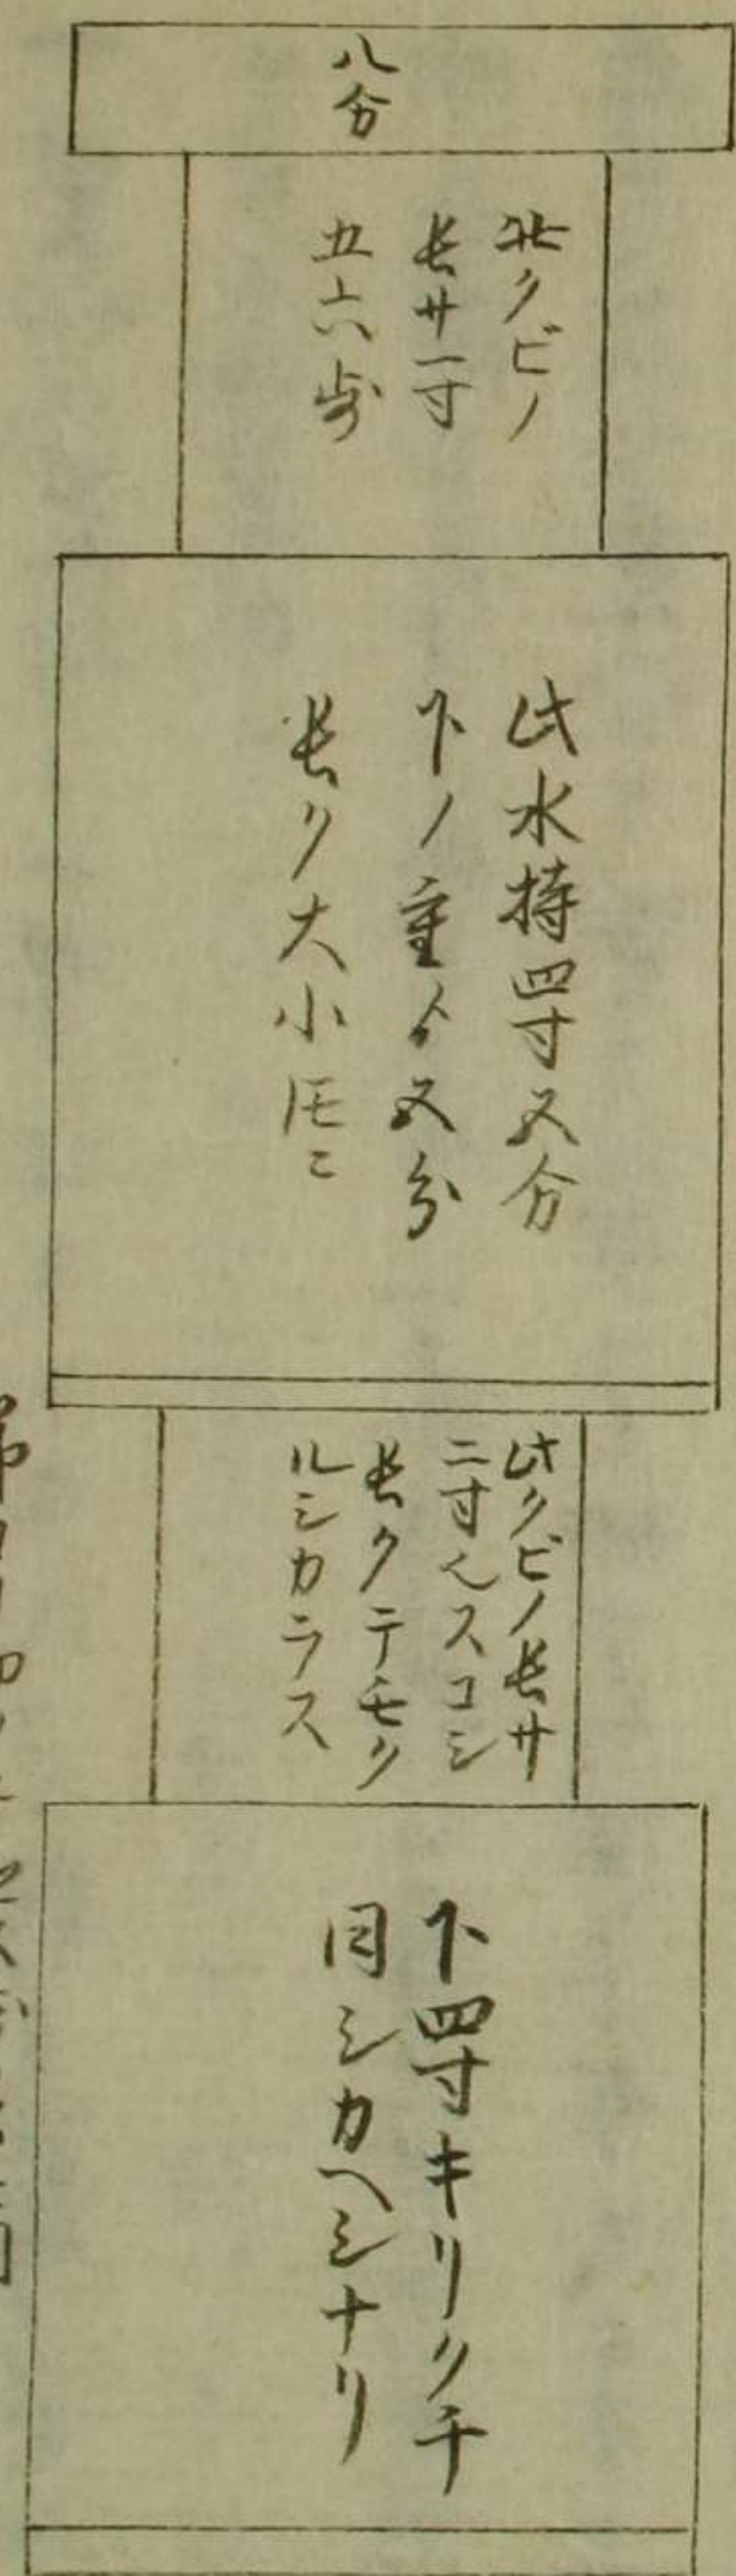 八分
此クビノ
長サ一寸
五六歩
此水持四寸五分
下ノ重ハ五分
長ク大小ニ
此クビノ長サ
二寸也スコシ
長クテモク
ルシカラス
下四寸キリクチ
同シカヘシナリ